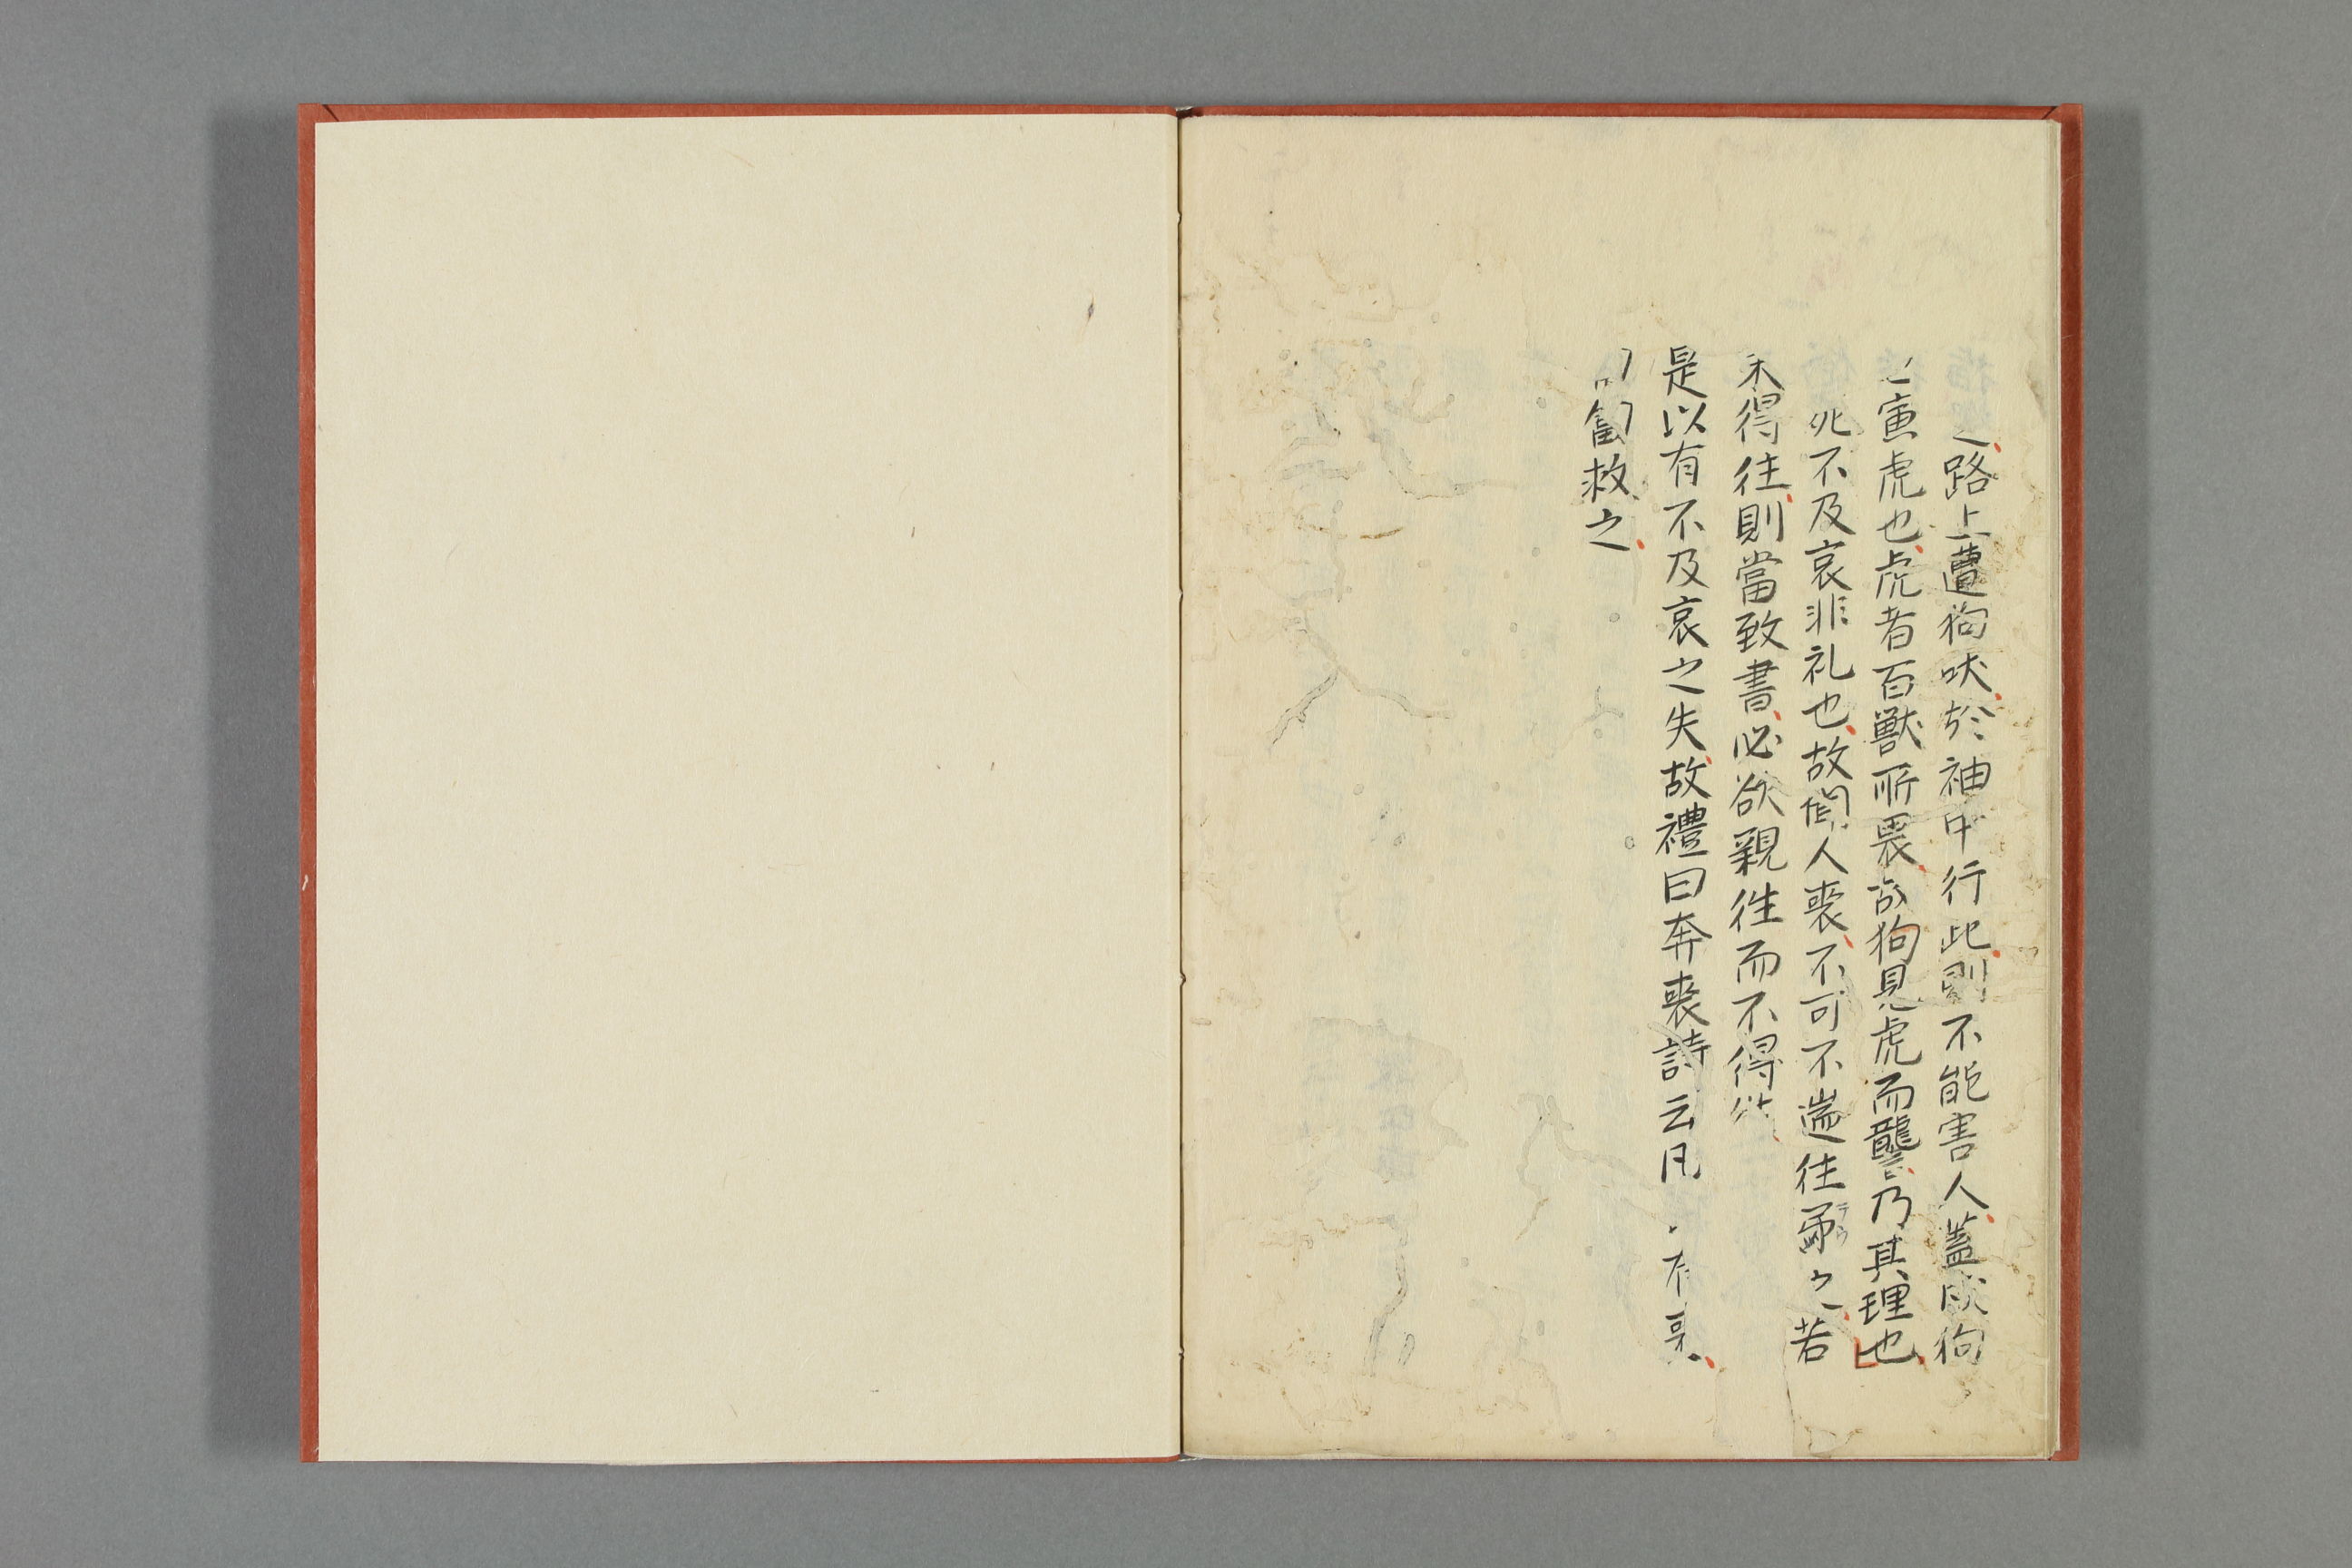 路上遭狗吠於袖中行此則不能害人蓋戌狗
寅虎也虎者百獸所畏故狗見虎而讋乃其理也
死不及哀非礼也故聞人喪不可不遄往弔之若
未得往則當致書必欲親往而不得往
是以有不及哀之失故禮曰奔喪詩云凡有喪
匍匐救之